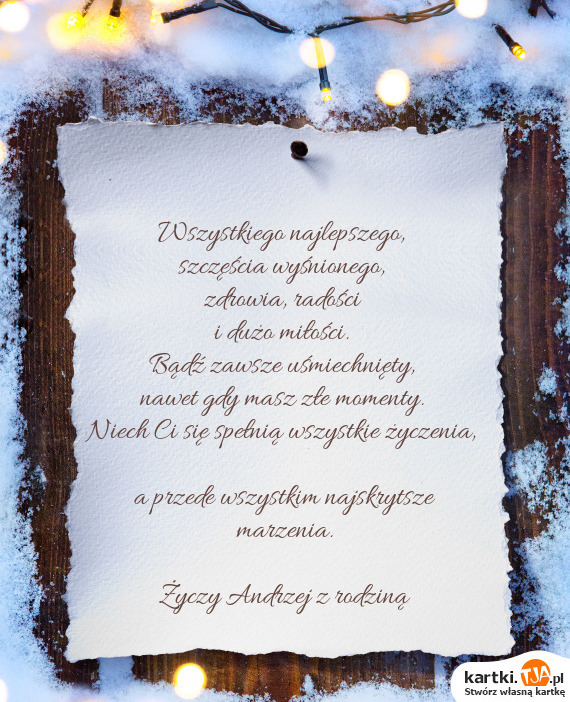 Wszystkiego najlepszego,
szczęścia wyśnionego,
zdrowia, radości
i dużo miłości.
Bądź zawsze uśmiechnięty,
nawet gdy masz złe momenty.
Niech Ci się spełnią wszystkie życzenia,
a przede wszystkim najskrytsze
marzenia.
Życzy Andrzej z rodziną
kartki.TJA.pl
Stwórz własną kartkę